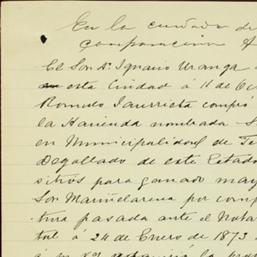 En la ciudad de
comparacion
El Sor. Dn. Ignacio Uranga
esta Ciudad á 11 de Oc
Romulo Iturrieta compró
la Hacienda nombrada S
en Municipalidad de Te
Degollado de este Estado
sitios para ganado may
Son Mariñelarena por comp
tura pasada ante el Nota
tal á 24 de Enero de 1873